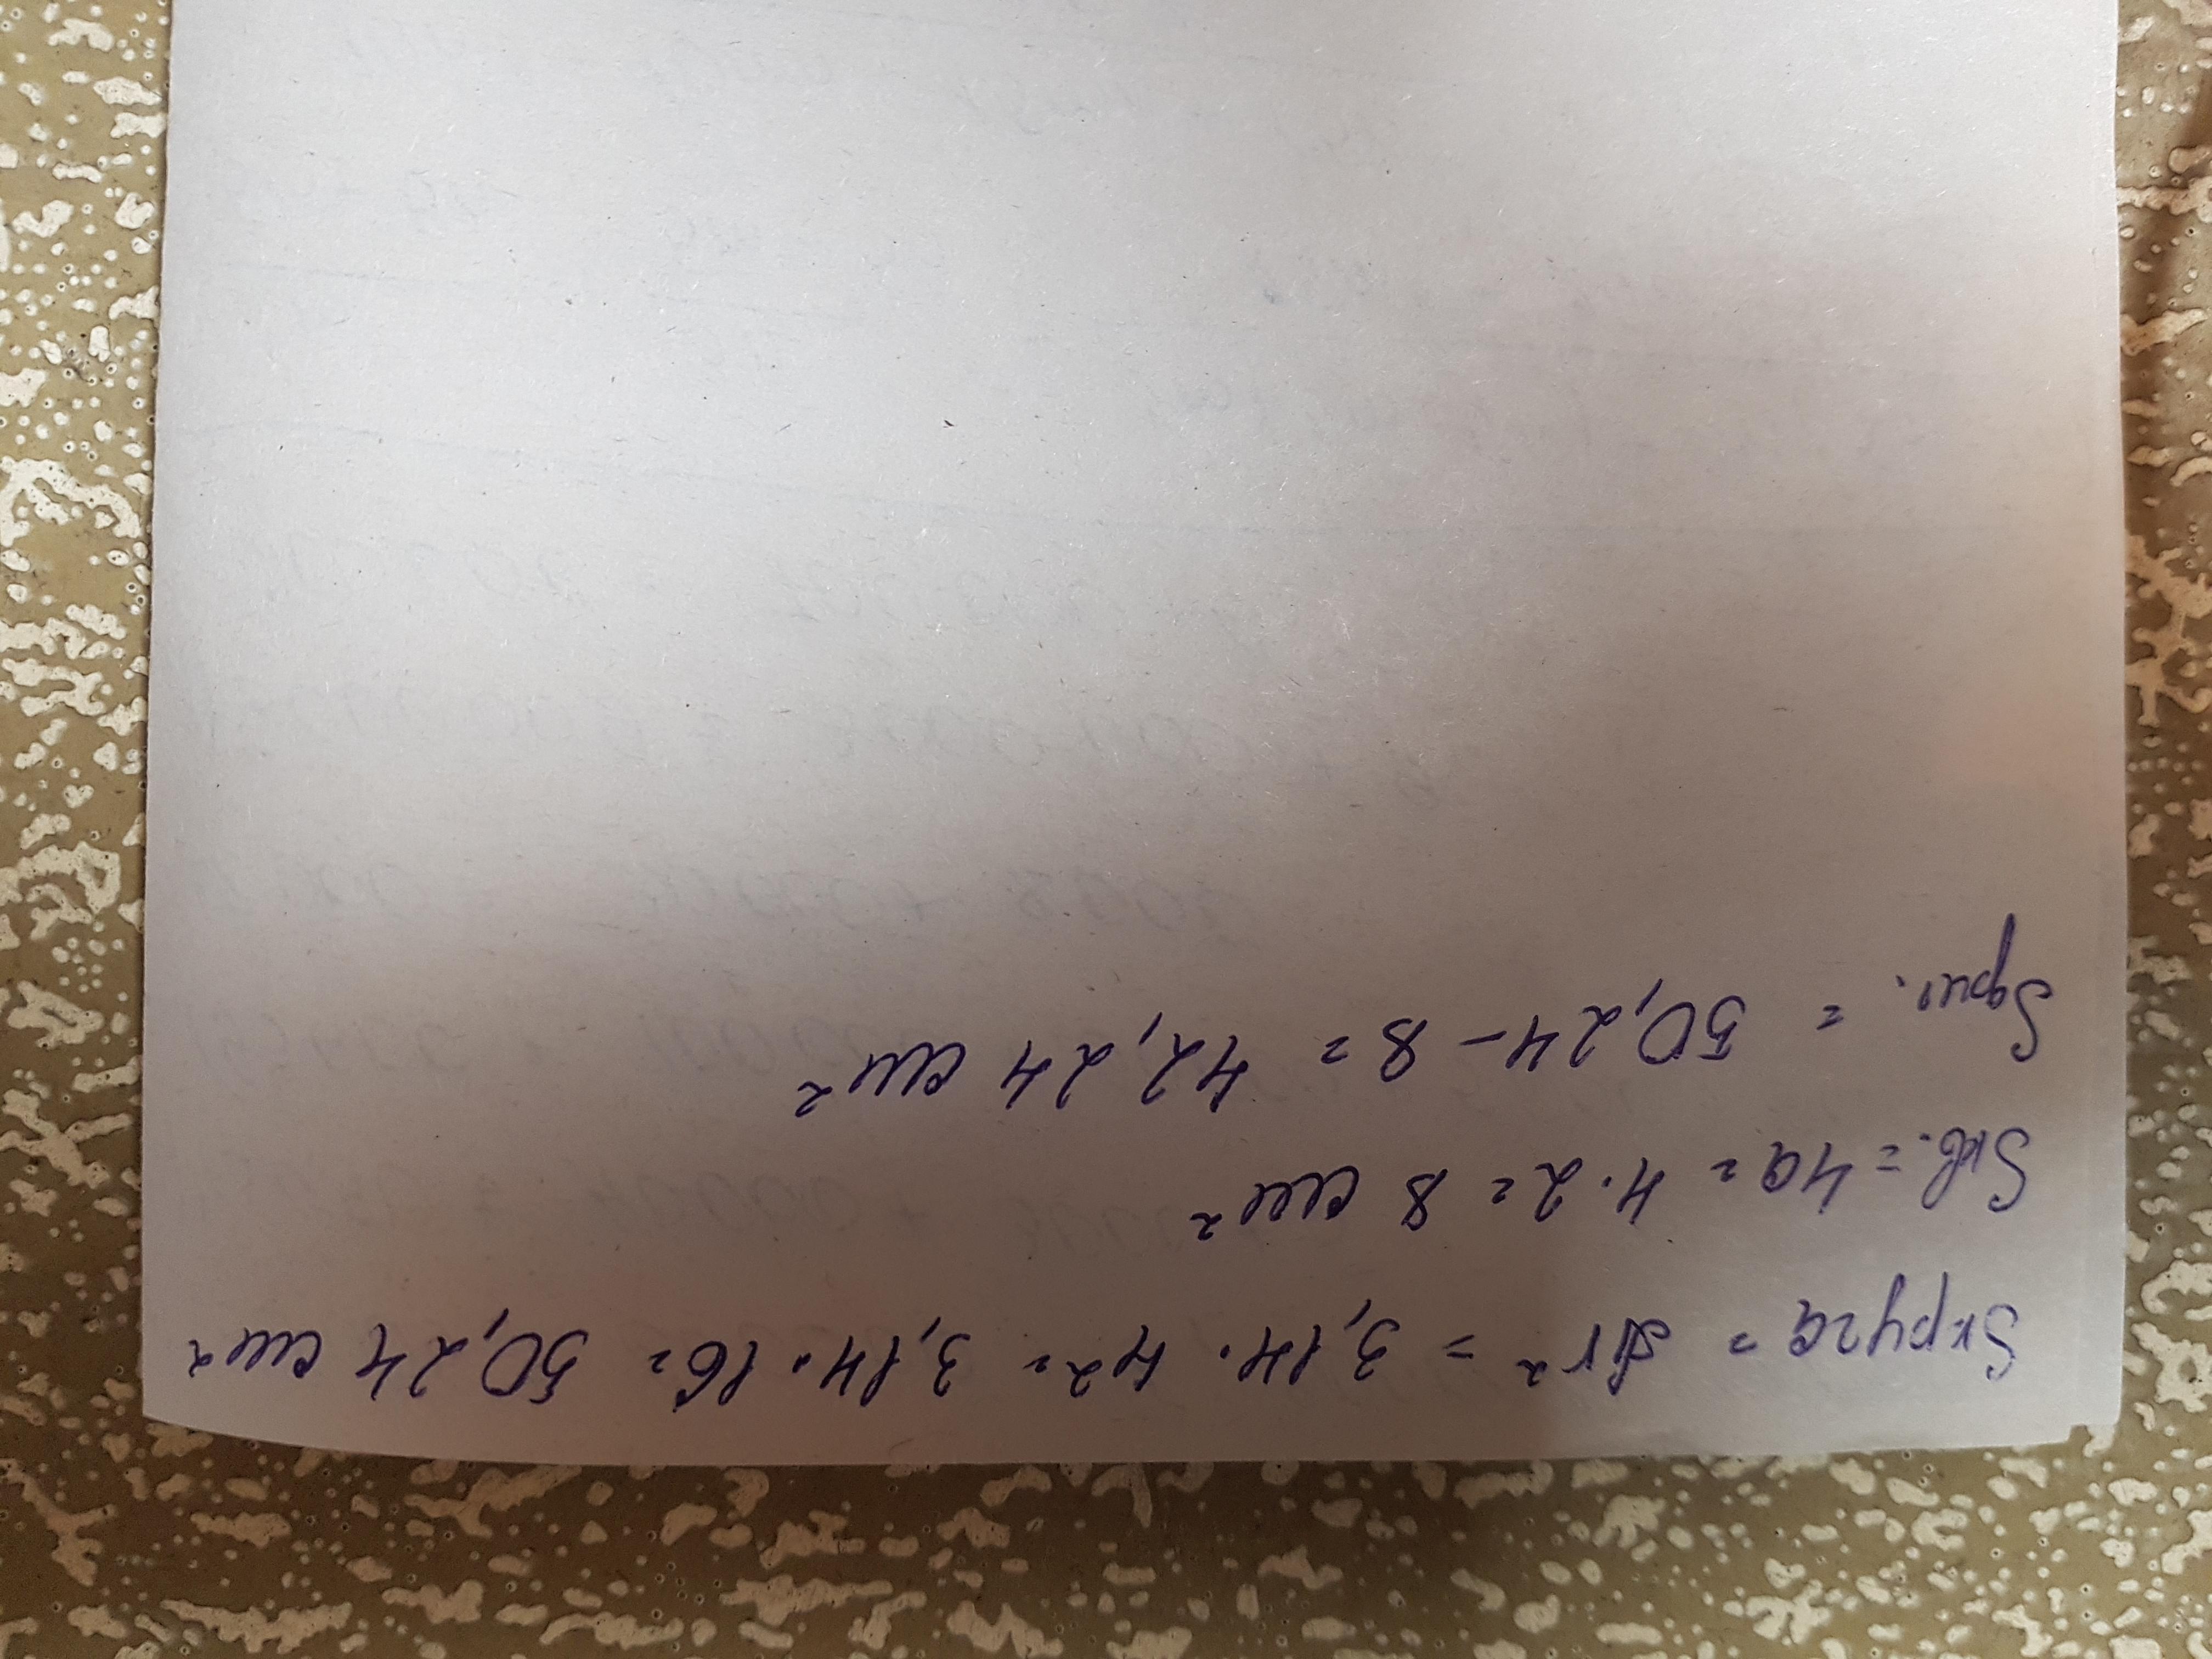 Sкруга = πr² = 3,14 · 4² = 3,14 · 16 = 50,24 см²
Sкв. = 4a = 4 · 2 = 8 см²
Sфиг. = 50,24 - 8 = 42,24 см²